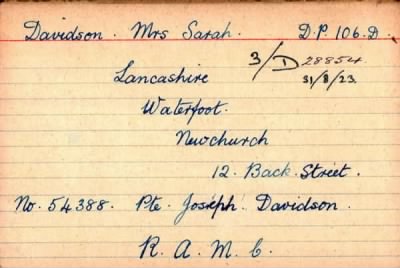 Davidson. Mrs Sarah. D.P. 106.D.
Lancashire 3/D 28854
Waterfoot. 31/8/23.
Newchurch
12. Back Street.
No. 54388. Pte. Joseph Davidson.
R.A.M.C.